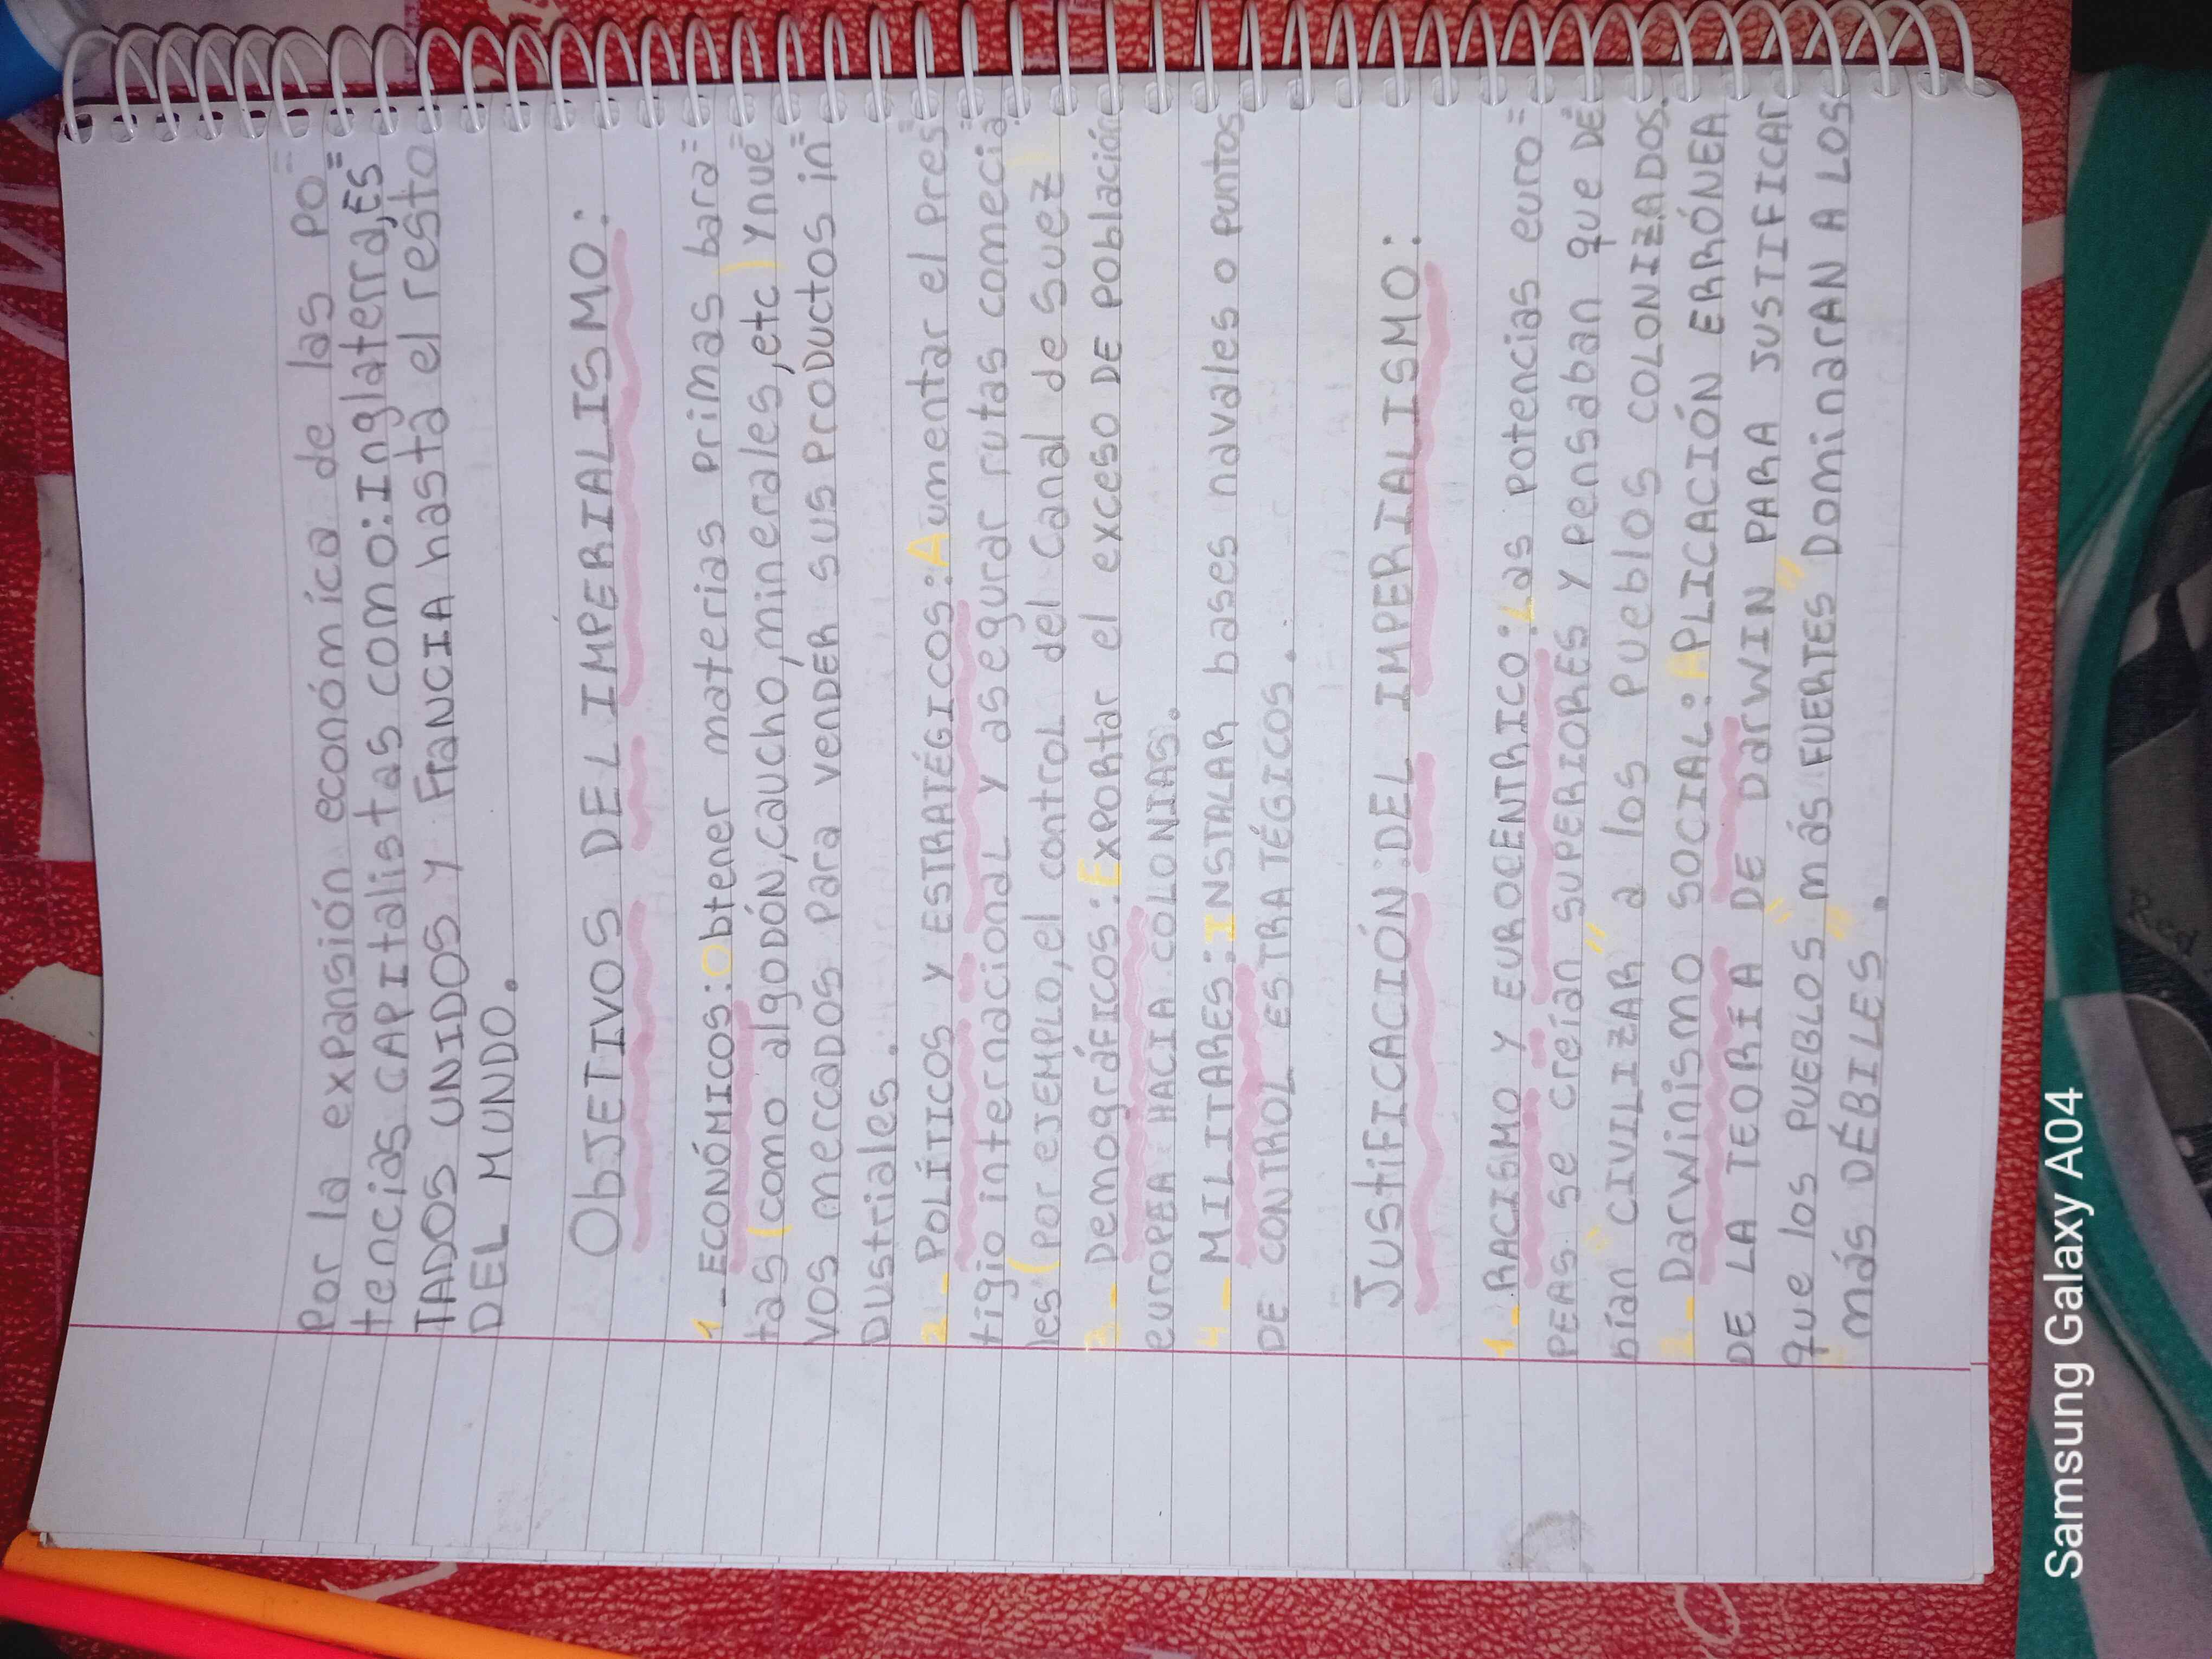 Por la expansión económica de las po=
tencias CAPITalistas como: Inglaterra, ES=
TADOS UNIDOS Y FranCIA hasta el resto
DEL MUNDO.
ObJETIVOS DEL IMPERIALISMO:
1_ ECONÓMICOS: Obtener materias primas bara=
tas (como algoDÓN, caucho, minerales, etc) Y nue=
vos mercaDOS Para venDER sus ProDuctos in=
Dustriales.
2_ POLÍTICOS Y ESTRATÉGICOS: Aumentar el Pres=
tigio internacional y asegurar rutas comecia=
les (Por EJEMPLO, el control del Canal de Suez)
3_ DemográFICOS: EXPORtar el exceso DE Población
europea HACIA COLONIAS.
4_ MILITARES: INSTALAR bases navales o Puntos
DE CONTROL ESTRATÉGICOS.
JUStiFICACIÓN DEL IMPERIALISMO:
1_ RACISMO Y EUROCENTRICO: Las Potencias euro=
PEAS se creían SUPERIORES Y Pensaban que DE=
bían "CIVILIZAR" a los Pueblos COLONIZADOS.
2_ Darwinismo SOCIAL: APLICACIÓN ERRÓNEA
DE LA TEORIA DE DarWIN PARA JUSTIFICAR
que los PUEBLOS "más FUERTES" DominarAN A LOS
"más DÉBILES".
Samsung Galaxy A04